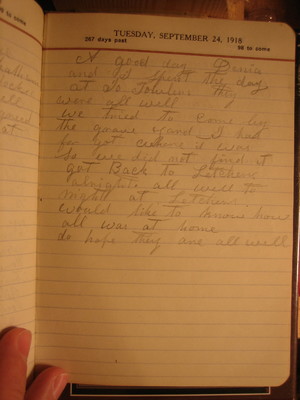 TUESDAY, SEPTEMBER 24, 1918
267 days past
98 to come
A good day
and I spent the day
at So they
were all well
we tried to come by
the grave yard I had
for got where it was
So we did not find it
got Back to Letchers
all well to
night at Letchers
would like to know how
all was at home
do hope they are all well